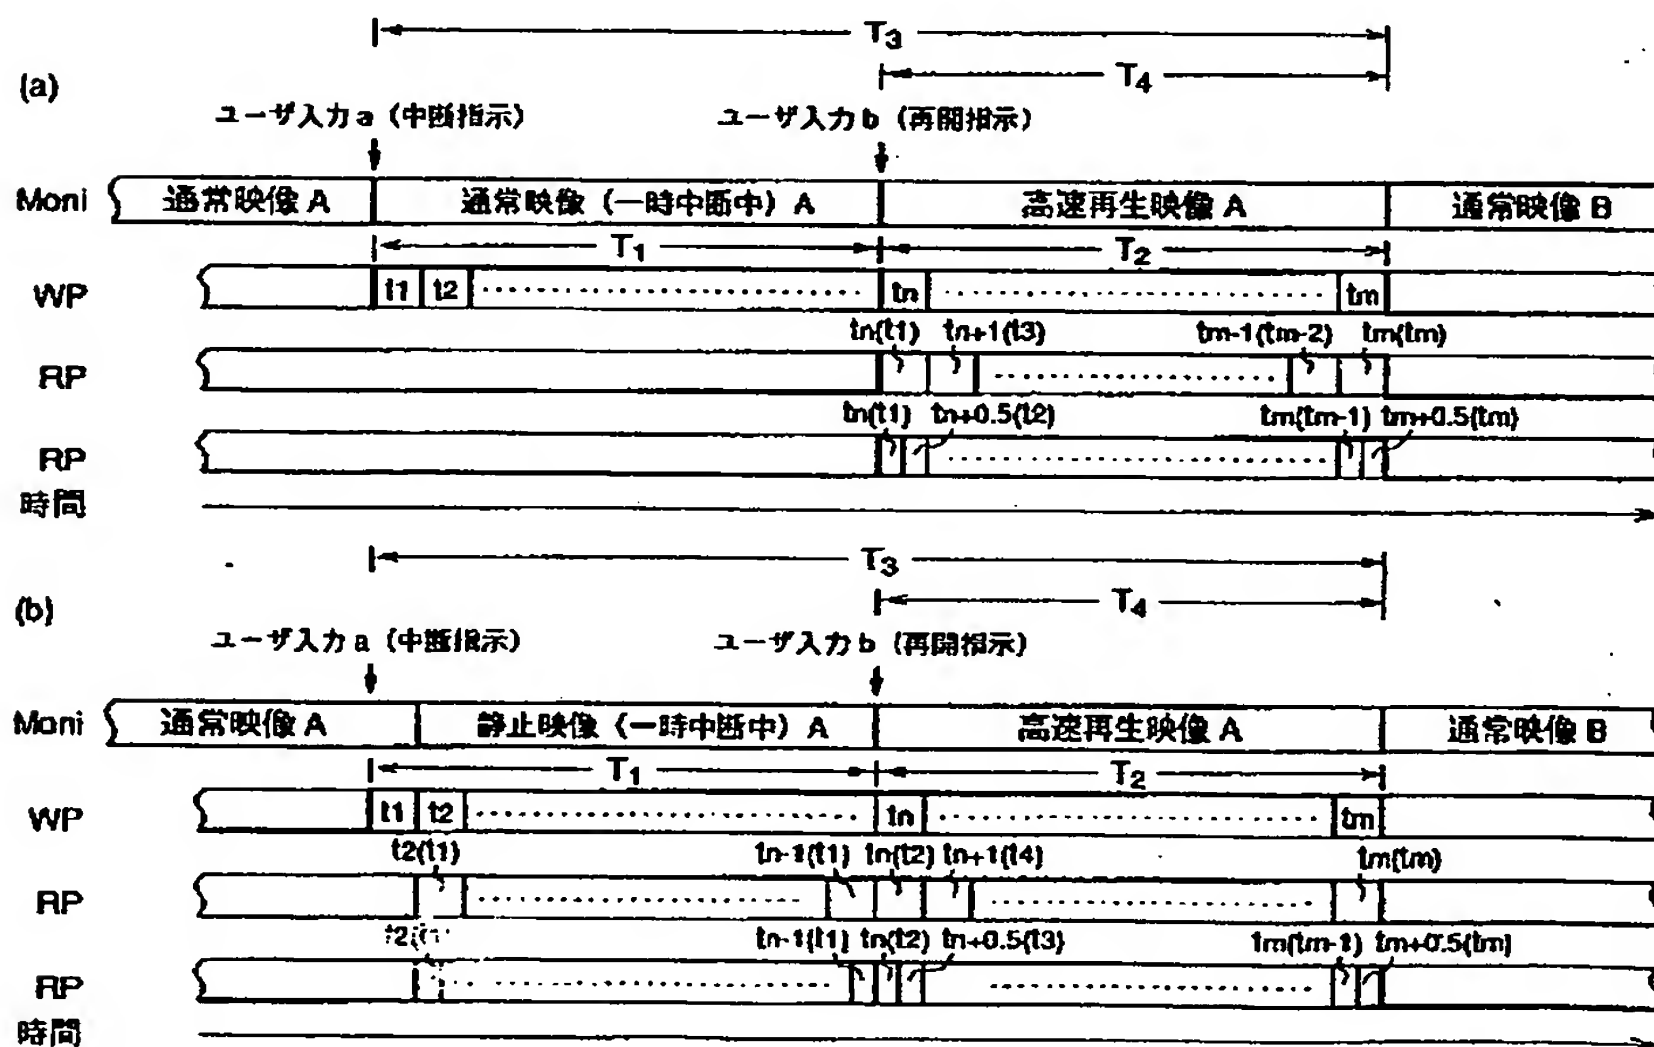 T₃
(a)
T₄
ユーザ入力a（中断指示） ユーザ入力b（再開指示）
Moni 通常映像 A 通常映像（一時中断中）A 高速再生映像 A 通常映像 B
T₁ T₂
WP t1 t2 tn tm
tn(t1) tn+1(t3) tm-1(tm-2) tm(tm)
RP
tn(t1) tn+0.5(t2) tm(tm-1) tm+0.5(tm)
RP
時間
T₃
(b)
T₄
ユーザ入力a（中断指示） ユーザ入力b（再開指示）
Moni 通常映像 A 静止映像（一時中断中）A 高速再生映像 A 通常映像 B
T₁ T₂
WP t1 t2 tn tm
t2(t1) tn-1(t1) tn(t2) tn+1(t4) tm(tm)
RP
tn-1(t1) tn(t2) tn+0.5(t3) tm(tm-1) tm+0.5(tm)
RP
時間